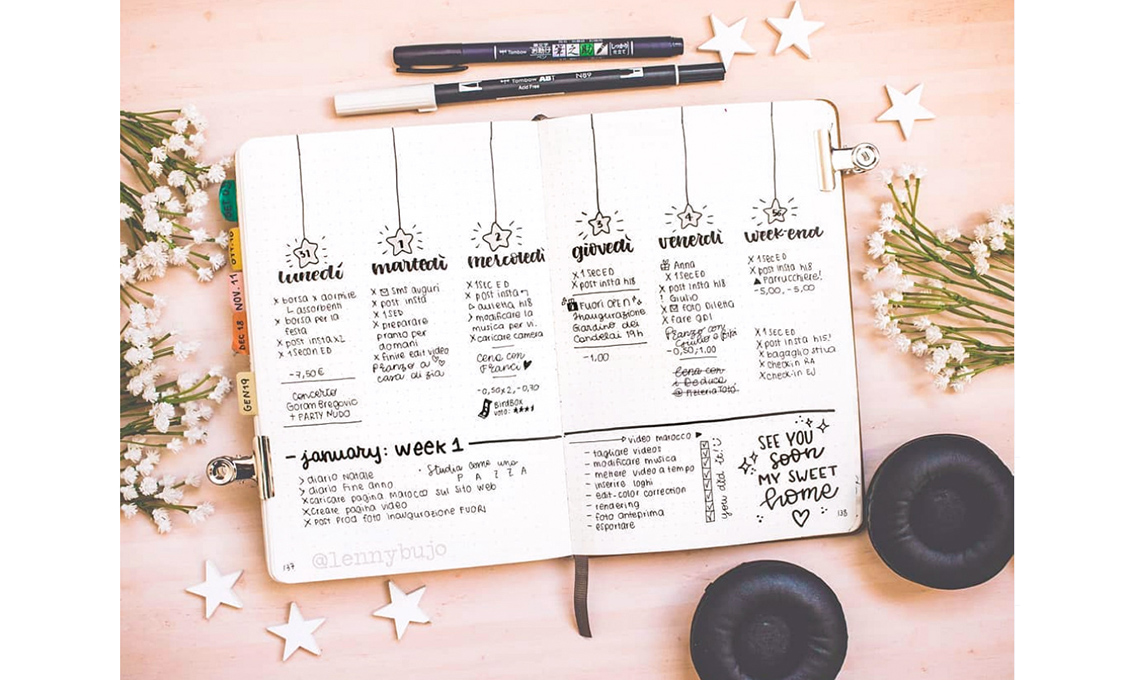 Tombow
Tombow ABT N89
Acid Free
NOV. 11
DEC 18
GEN19
31
lunedí
x borsa x dormire
L assorbenti
x borsa per la
festa
x post insta x2
x 1 second ED
-7,50€
concerto
Goran Bregovic
+ PARTY NUDO
1
martedì
x sms auguri
x post insta
x 1SED
x preparare
pranzo per
domani
x finire edit video
Pranzo a
casa di zia
2
mercoledì
x 1SEC ED
x post insta
> modificare la
musica per vi.
x caricare camera
Cena con
Franci
-0,50x2, -0,70
BirdBox
voto:
3
giovedì
x 1SEC ED
x post insta h18
Fuori OPEN
Inaugurazione
Giardino dei
Candelai 19h
-1.00
4
venerdì
Anna
x 1SEC ED
x post insta h18
! Giulio
x foto Diletta
x fare GPL
Pranzo con
Giulio e
-0,50;1.00
Cena con
i Deduca
56
week-end
x 1SEC ED
x post insta h18
Parrucchiere!
-5,00, -5,00
x 1SEC ED
x post insta h15!
x bagaglio stiva
x check-in RA
x check-in EJ
- january: week 1
> diario Natale
> diario Fine anno
x caricare pagina Marocco sul sito web
x Create pagina video
x post Prod foto inaugurazione FUORI
• Studia come una
P A Z Z A
video marocco
- tagliare videos
- modificare musica
- mettere video a tempo
- inserire loghi
- edit-color correction
- rendering
- foto anteprima
- esportare
you did it! :)
SEE YOU
soon
MY SWEET
home
137
@lennybujo
138